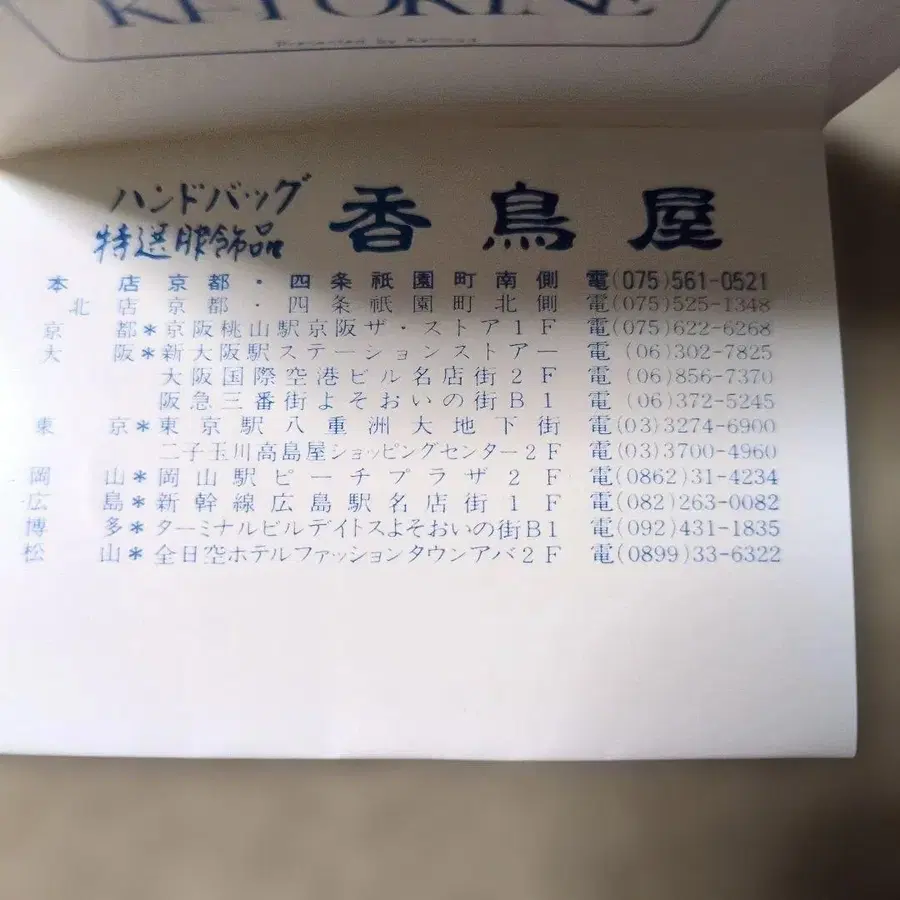 Presented by
ハンドバッグ
特選服飾品
香鳥屋
本店 京都・四条祇園町南側 電(075)561-0521
北店 京都・四条祇園町北側 電(075)525-1348
京都*京阪桃山駅京阪ザ・ストア1F 電(075)622-6268
大阪*新大阪駅ステーションストアー 電(06)302-7825
大阪国際空港ビル名店街2F 電(06)856-7370
阪急三番街よそおいの街B1 電(06)372-5245
東京*東京駅八重洲大地下街 電(03)3274-6900
二子玉川高島屋ショッピングセンター2F 電(03)3700-4960
岡山*岡山駅ピーチプラザ2F 電(0862)31-4234
広島*新幹線広島駅名店街1F 電(082)263-0082
博多*ターミナルビルデイトスよそおいの街B1 電(092)431-1835
松山*全日空ホテルファッションタウンアバ2F 電(0899)33-6322